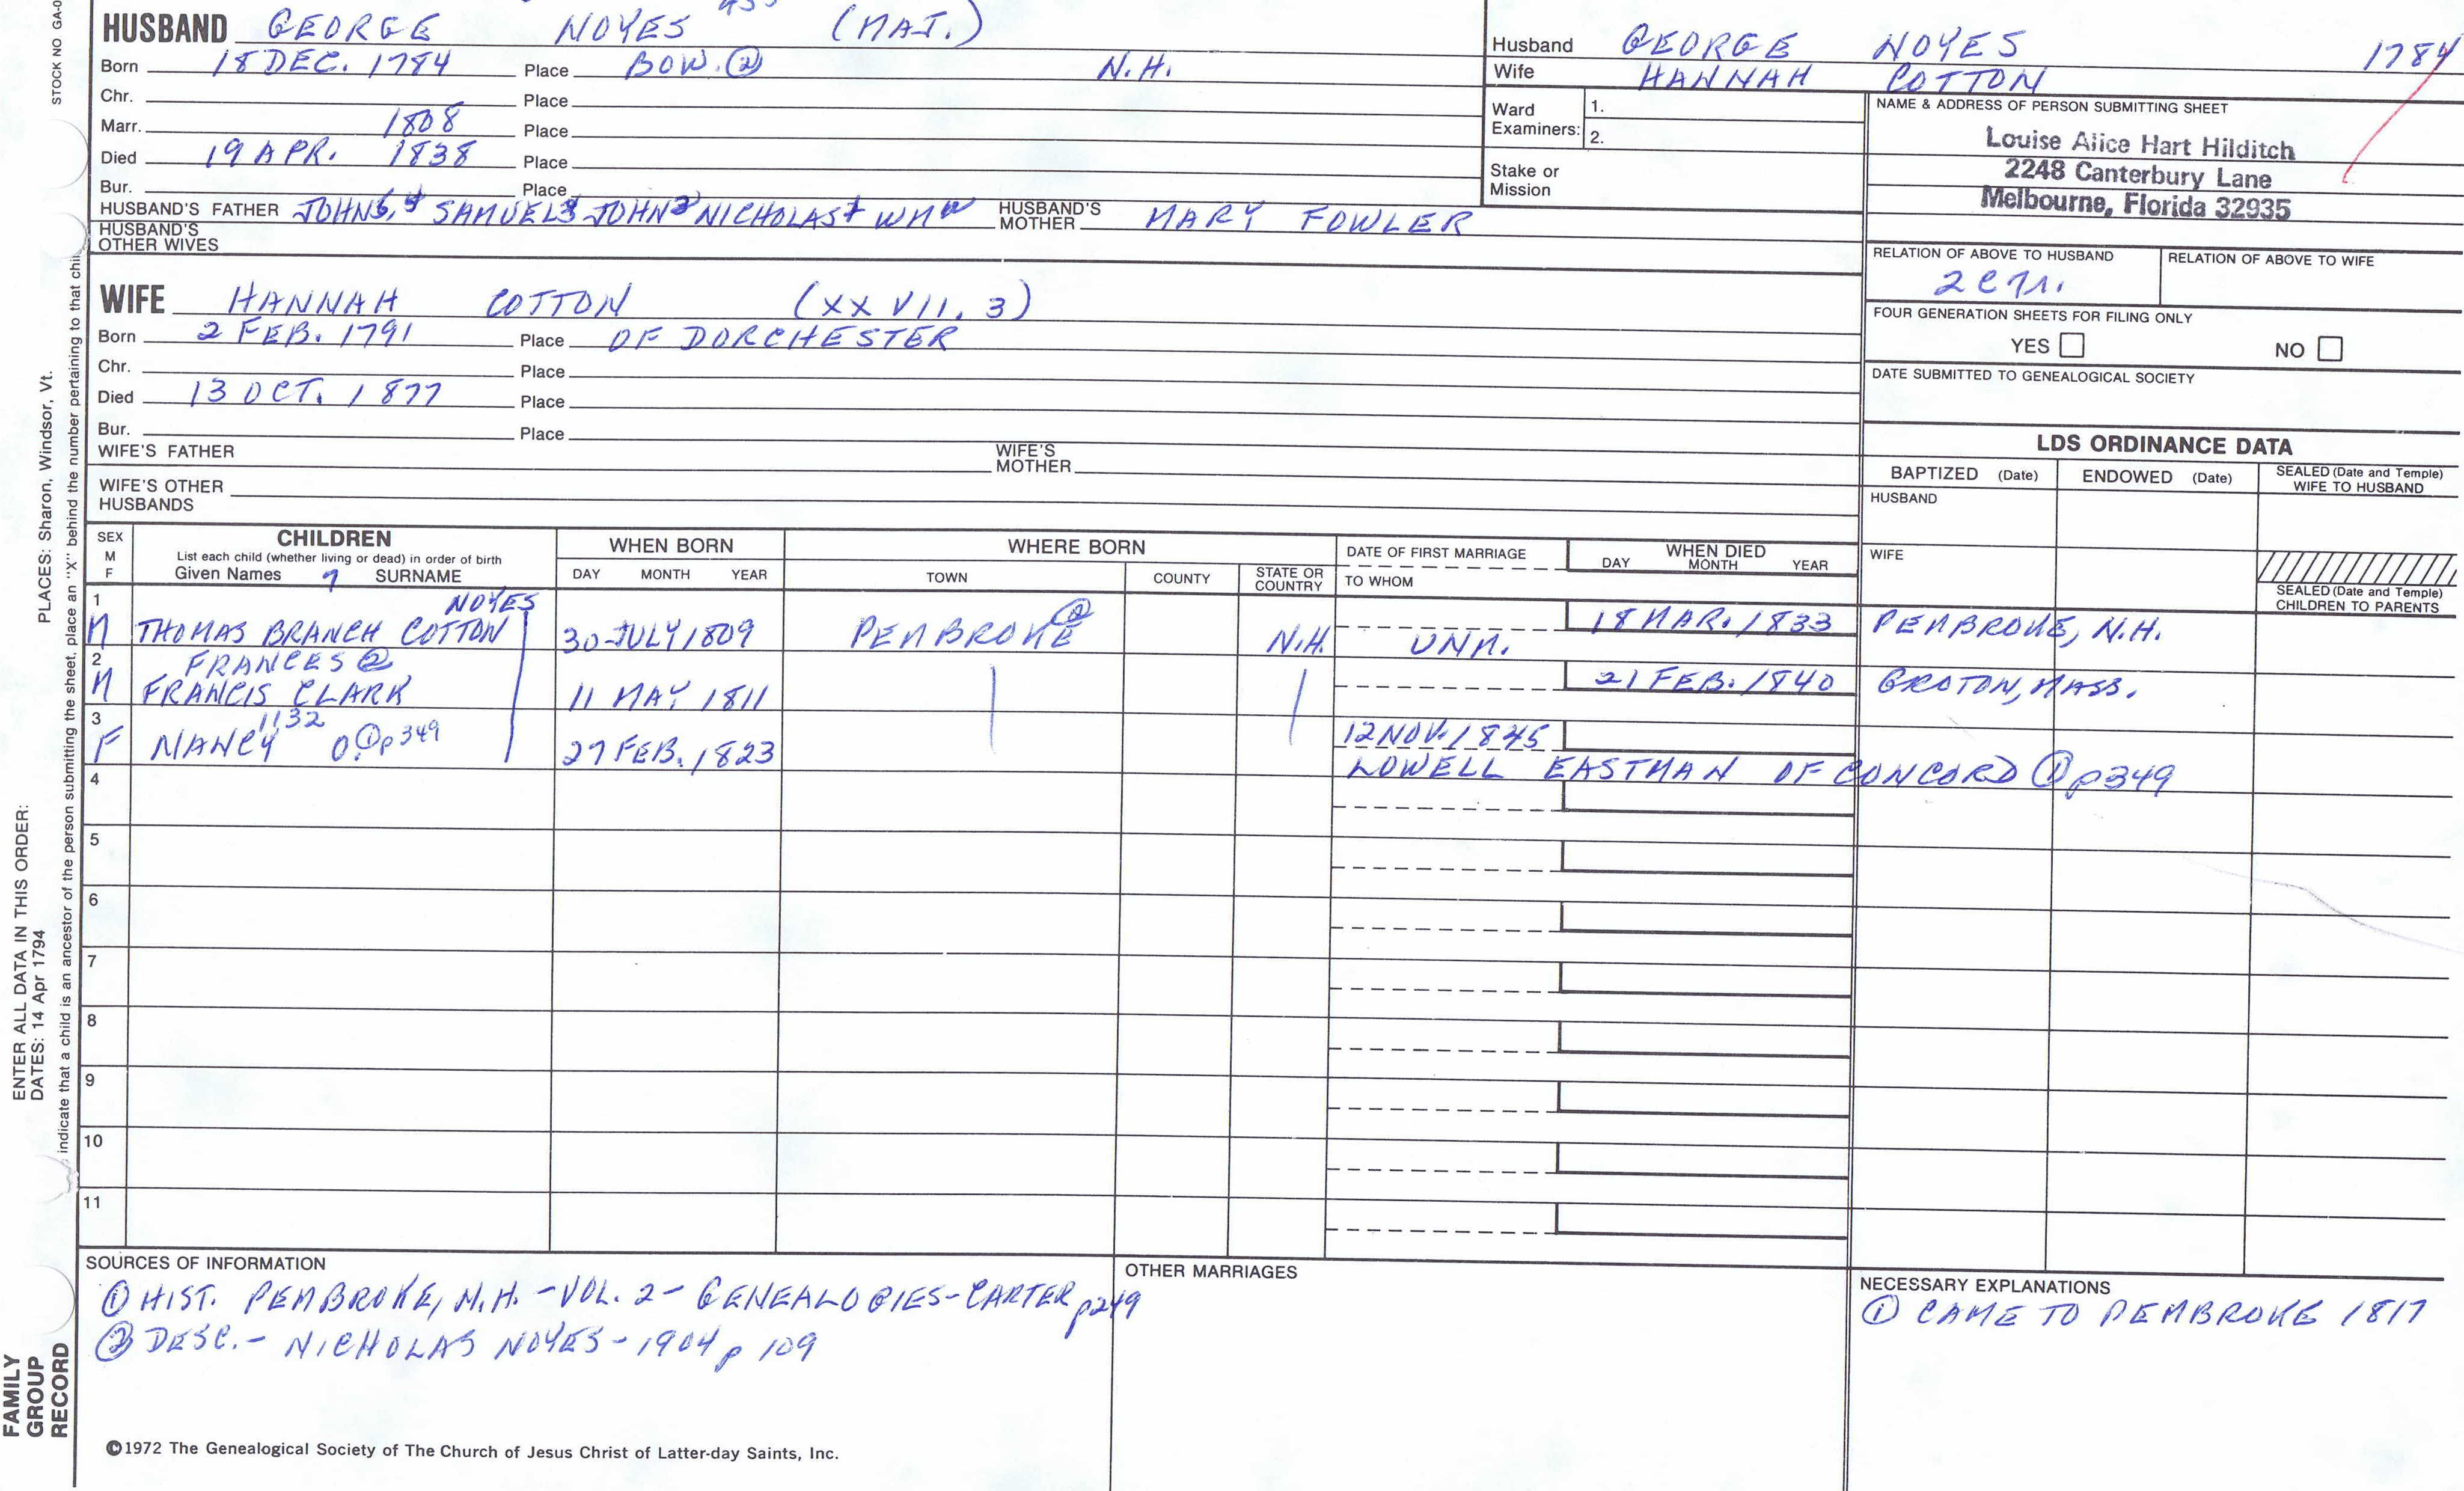 HUSBAND GEORGE NOYES (MAJ.)
Born 18 DEC. 1784 Place BOW. ② N.H.
Chr. Place
Marr. 1808 Place
Died 19 APR. 1838 Place
Bur. Place
HUSBAND'S FATHER JOHN SAMUEL JOHN NICHOLAS WM HUSBAND'S MOTHER MARY FOWLER
HUSBAND'S OTHER WIVES
WIFE HANNAH COTTON (XXVII. 3)
Born 2 FEB. 1791 Place OF DORCHESTER
Chr. Place
Died 13 OCT. 1877 Place
Bur. Place
WIFE'S FATHER WIFE'S MOTHER
WIFE'S OTHER HUSBANDS
Husband GEORGE NOYES 1784
Wife HANNAH COTTON
Ward Examiners: 1.
2.
Stake or Mission
NAME & ADDRESS OF PERSON SUBMITTING SHEET
Louise Alice Hart Hilditch
2248 Canterbury Lane
Melbourne, Florida 32935
RELATION OF ABOVE TO HUSBAND RELATION OF ABOVE TO WIFE
FOUR GENERATION SHEETS FOR FILING ONLY
YES NO
DATE SUBMITTED TO GENEALOGICAL SOCIETY
LDS ORDINANCE DATA
BAPTIZED (Date) ENDOWED (Date) SEALED (Date and Temple) WIFE TO HUSBAND
HUSBAND
WIFE
SEALED (Date and Temple) CHILDREN TO PARENTS
SEX M F
CHILDREN
List each child (whether living or dead) in order of birth
Given Names SURNAME
WHEN BORN
DAY MONTH YEAR
WHERE BORN
TOWN COUNTY STATE OR COUNTRY
DATE OF FIRST MARRIAGE
TO WHOM
WHEN DIED
DAY MONTH YEAR
1 NOYES
M THOMAS BRANCH COTTON 30 JULY 1809 PEMBROKE ② N.H. UNM. 18 MAR. 1833 PEMBROKE, N.H.
2 FRANCES ②
M FRANCIS CLARK 11 MAY 1811 21 FEB. 1840 GROTON, MASS.
3 1132
F NANCY O. ① p349 27 FEB. 1823 12 NOV. 1845
LOWELL EASTMAN OF CONCORD ① p349
4
5
6
7
8
9
10
11
SOURCES OF INFORMATION
① HIST. PEMBROKE, N.H. - VOL. 2 - GENEALOGIES - CARTER p249
② DESC. - NICHOLAS NOYES - 1904 p 109
OTHER MARRIAGES
NECESSARY EXPLANATIONS
① CAME TO PEMBROKE 1817
©1972 The Genealogical Society of The Church of Jesus Christ of Latter-day Saints, Inc.
STOCK NO GA-0
PLACES: Sharon, Windsor, Vt.
indicate that a child is an ancestor of the person submitting the sheet, place an "X" behind the number pertaining to that
ENTER ALL DATA IN THIS ORDER:
DATES: 14 Apr 1794
FAMILY GROUP RECORD